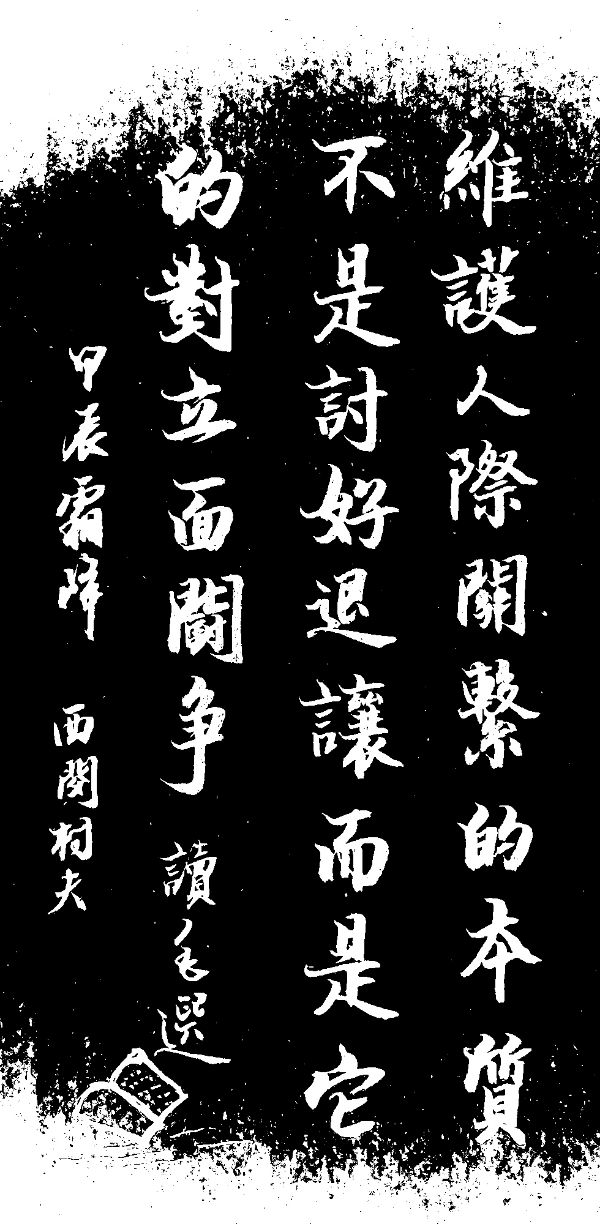 維護人際關繫的本質
不是討好退讓而是它
的對立面鬭争 讀毛選
甲辰霜降 西閣村夫